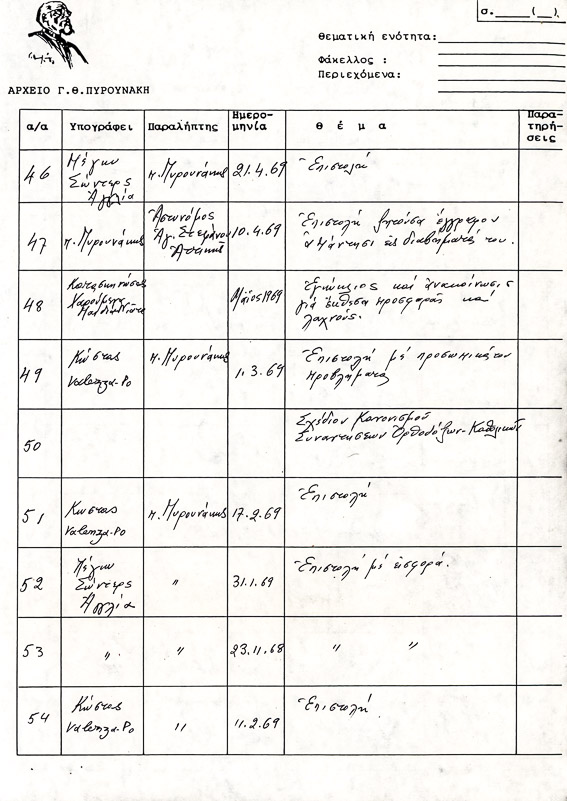 σ._____(__)
Θεματική ενότητα:
Φάκελλος :
Περιεχόμενα:
ΑΡΧΕΙΟ Γ.Θ.ΠΥΡΟΥΝΑΚΗ
α/α Υπογράφει Παραλήπτης Ημερο-μηνία θ έ μ α Παρα-τηρή-σεις
46 Πέγκυ Σώντερς Ἀγγλία π. Πυρουνάκης 21.4.69 Ἐπιστολή
47 π. Πυρουνάκης Ἀστυνόμος Ἁγ. Στεφάνου Ἀττικῆς 10.4.69 Ἐπιστολή ζητοῦσα ἔγγραφον
ἀπάντησι εἰς διαβήματά του.
48 Κατασκηνώσεις Χαρούμενα Μάϊος 1969 Ἐγκύκλιος καί ἀνακοίνωσις
γιά ἔκθεση προσφορᾶς καί
λαχνούς.
49 Κώστας Valenza-Po π. Πυρουνάκης 1.3.69 Ἐπιστολή μέ προσωπικά του
προβλήματα
50 Σχέδιον Κανονισμοῦ
Συναντήσεων Ὀρθοδόξων-Καθολικῶν
51 Κώστας Valenza-Po π. Πυρουνάκης 17.2.69 Ἐπιστολή
52 Πέγκυ Σώντερς Ἀγγλία " 31.1.69 Ἐπιστολή μέ εἰσφορά.
53 " " 23.11.68 " "
54 Κώστας Valenza-Po " 11.2.69 Ἐπιστολή